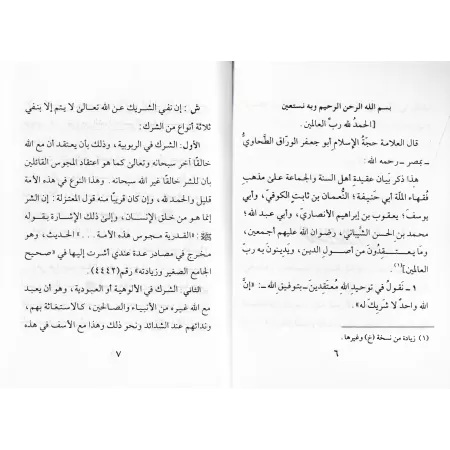 بسم الله الرحمن الرحيم وبه نستعين
[الحمدُ لله ربِّ العالمين.
قال العلامة حجةُ الإسلام أبو جعفر الورّاق الطحاويُّ
ـ بمصر ـ رحمه الله:
هذا ذكر بيان عقيدةِ أهل السنة والجماعة على مذهب
فُقهاء الملّة أبي حَنيفة؛ النُّعمان بن ثابتٍ الكوفي، وأبي
يوسفَ؛ يعقوب بن إبراهيم الأنصاريّ، وأبي عبد الله؛
محمد بن الحسن الشَّيباني، رضوان الله عليهم أجمعين،
وما يعتقدون من أصول الدين، ويَدينون به ربّ
العالمين](١).
١ ـ نَقولُ في توحيدِ اللهِ مُعتقدينَ ـ بتوفيقِ اللهِ ـ: «إنَّ
الله واحدٌ لا شَريكَ له».
(١) زيادة من نسخة (خ) وغيرها.
٦
ش: إن نفي الشريك عن الله تعالى لا يتم إلا بنفي
ثلاثة أنواع من الشرك:
الأول: الشرك في الربوبية، وذلك بأن يعتقد أن مع الله
خالقًا آخر سبحانه وتعالى كما هو اعتقاد المجوس القائلين
بأن للشر خالقًا غير الله سبحانه. وهذا النوع في هذه الأمة
قليل والحمد لله، وإن كان قريبًا منه قول المعتزلة: إن الشر
إنما هو من خلق الإنسان، وإلى ذلك الإشارة بقوله
ﷺ: «القدرية مجوس هذه الأمة . . .» الحديث، وهو
مخرج في مصادر عدة عندي أشرت إليها في «صحيح
الجامع الصغير وزيادته» رقم (٤٤٤٢).
الثاني: الشرك في الألوهية أو العبودية، وهو أن يعبد
مع الله غيره من الأنبياء والصالحين، كالاستغاثة بهم،
وندائهم عند الشدائد ونحو ذلك وهذا مع الأسف في هذه
٧